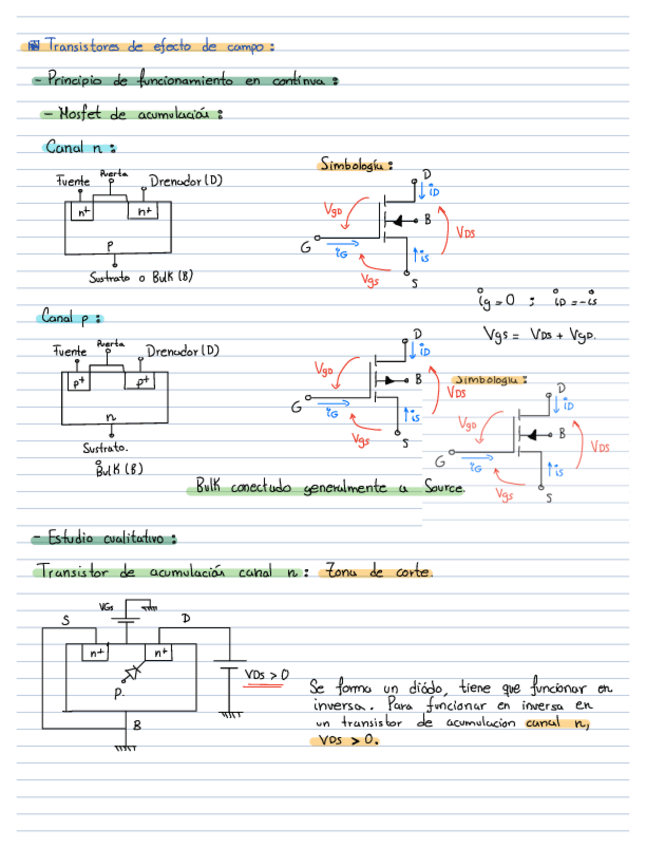 Transistores de efecto de campo:
- Principio de funcionamiento en contínua:
- Mosfet de acumulación:
Canal n:
Simbología:
Fuente Puerta Drenador (D)
n+ n+
P
Sustrato o Bulk (B)
D
iD
VgD
B
VDS
G
iG
is
Vgs
S
ig = 0 ; iD = -is
Vgs = VDS + VgD.
Canal p:
Fuente Puerta Drenador (D)
p+ p+
n
Sustrato.
ó
Bulk (B)
D
iD
VgD
B
VDS
G
iG
is
Vgs
S
Simbología:
D
iD
VgD
B
VDS
G
iG
is
Vgs
S
Bulk conectado generalmente a Source.
- Estudio cualitativo:
Transistor de acumulación canal n: Zona de corte.
VGs
S D
n+ n+
P.
VDs > 0
B
Se forma un diódo, tiene que funcionar en
inversa. Para funcionar en inversa en
un transistor de acumulacion canal n,
VDS > 0.